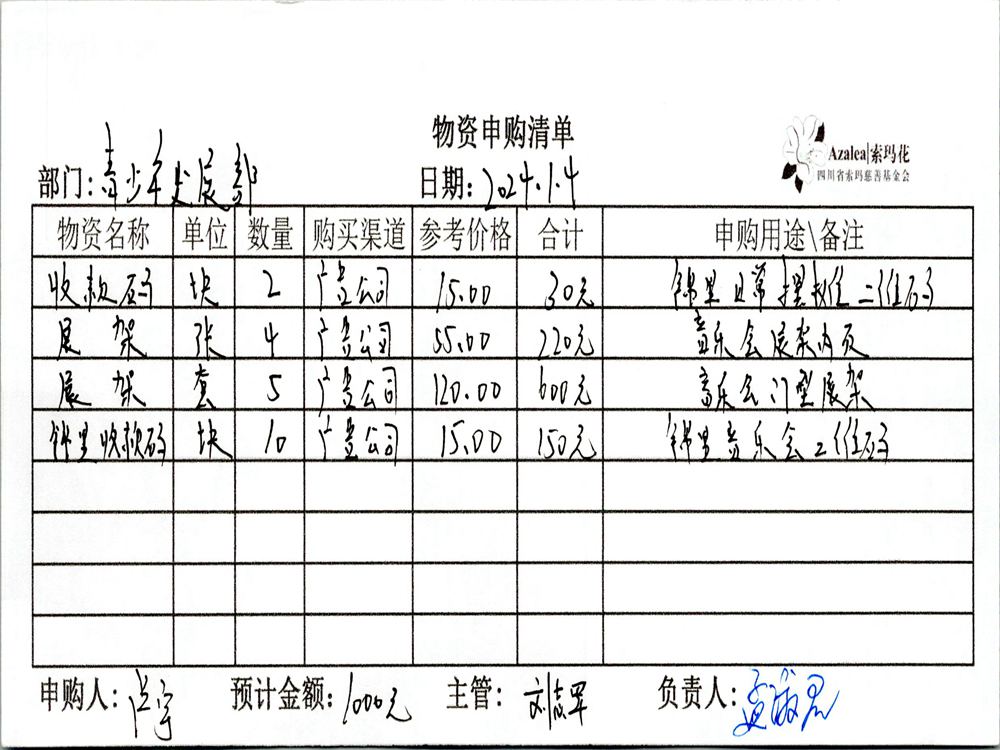 物资申购清单
Azalea|索玛花
四川省索玛慈善基金会
部门:青少年发展部 日期:2024.1.4
物资名称 单位 数量 购买渠道 参考价格 合计 申购用途\备注
收款码 块 2 广告公司 15.00 30元 锦里日常摆摊二维码
展架 张 4 广告公司 55.00 220元 音乐会展架内页
展架 套 5 广告公司 120.00 600元 音乐会门型展架
锦里收款码 块 10 广告公司 15.00 150元 锦里音乐会二维码
申购人: 预计金额:1000元 主管: 负责人: